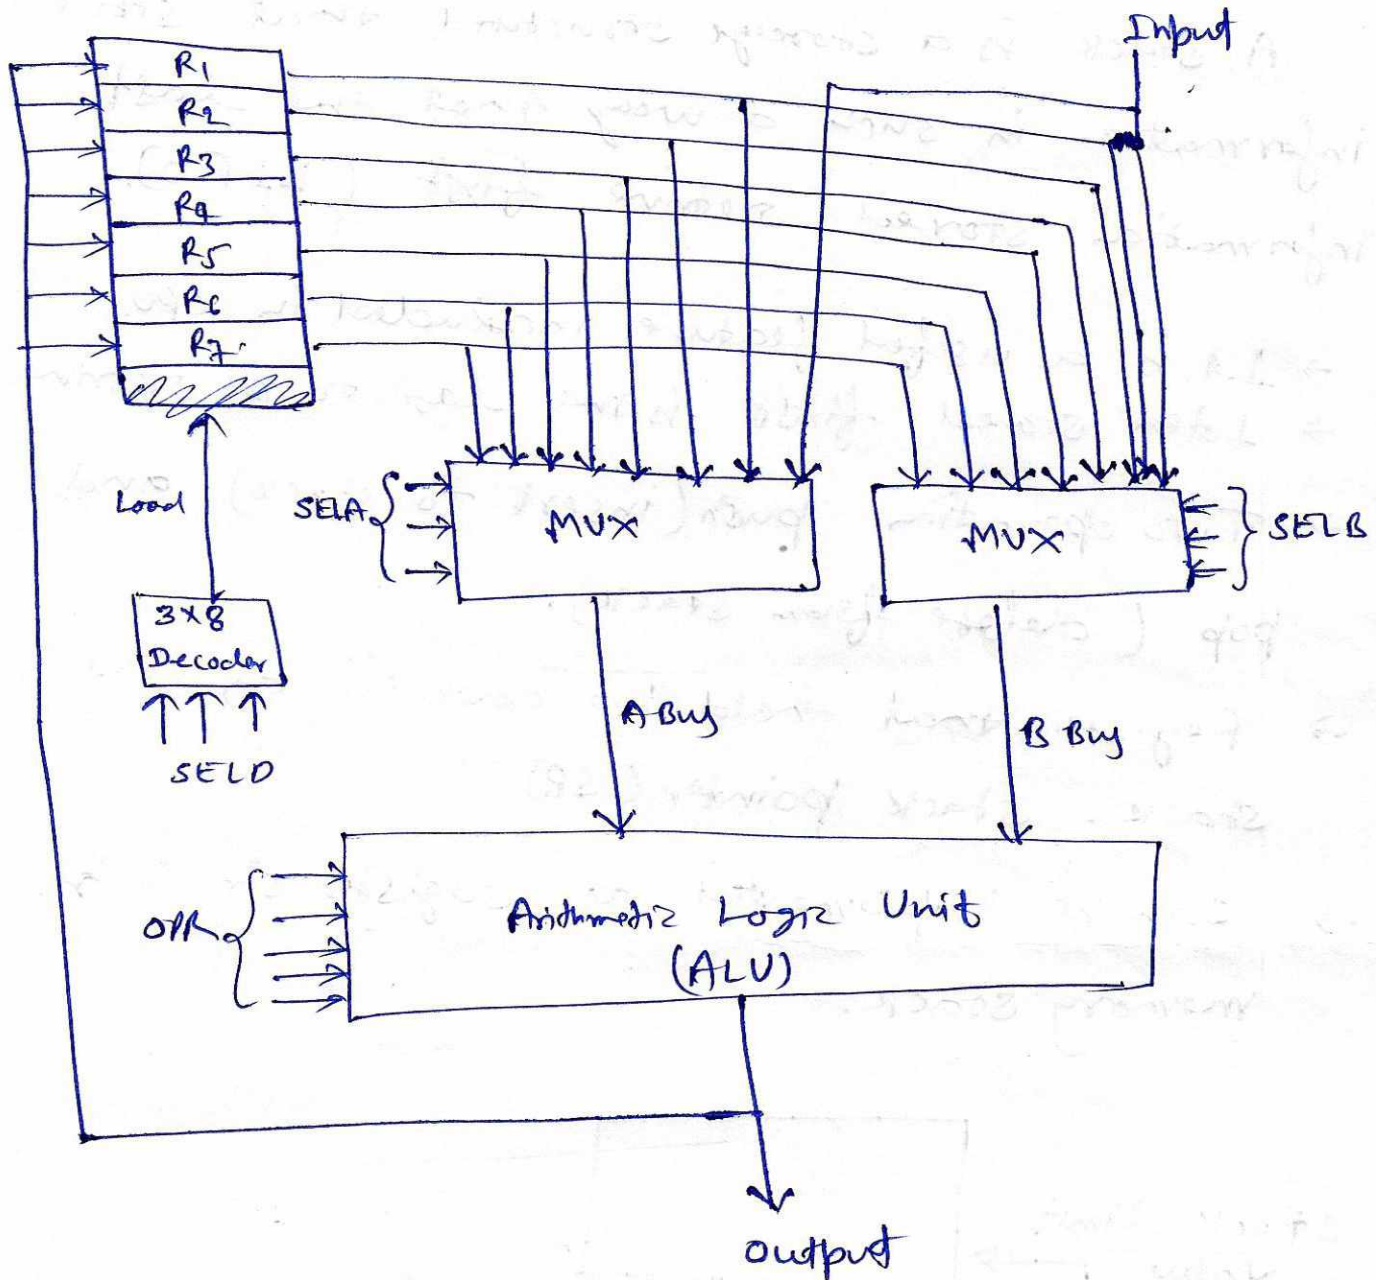 Input
R1
R2
R3
R4
R5
R6
R7
Load
SELA
MUX
MUX
SELB
3X8
Decoder
SELD
A Bus
B Bus
OPR
Arithmetic Logic Unit
(ALU)
Output